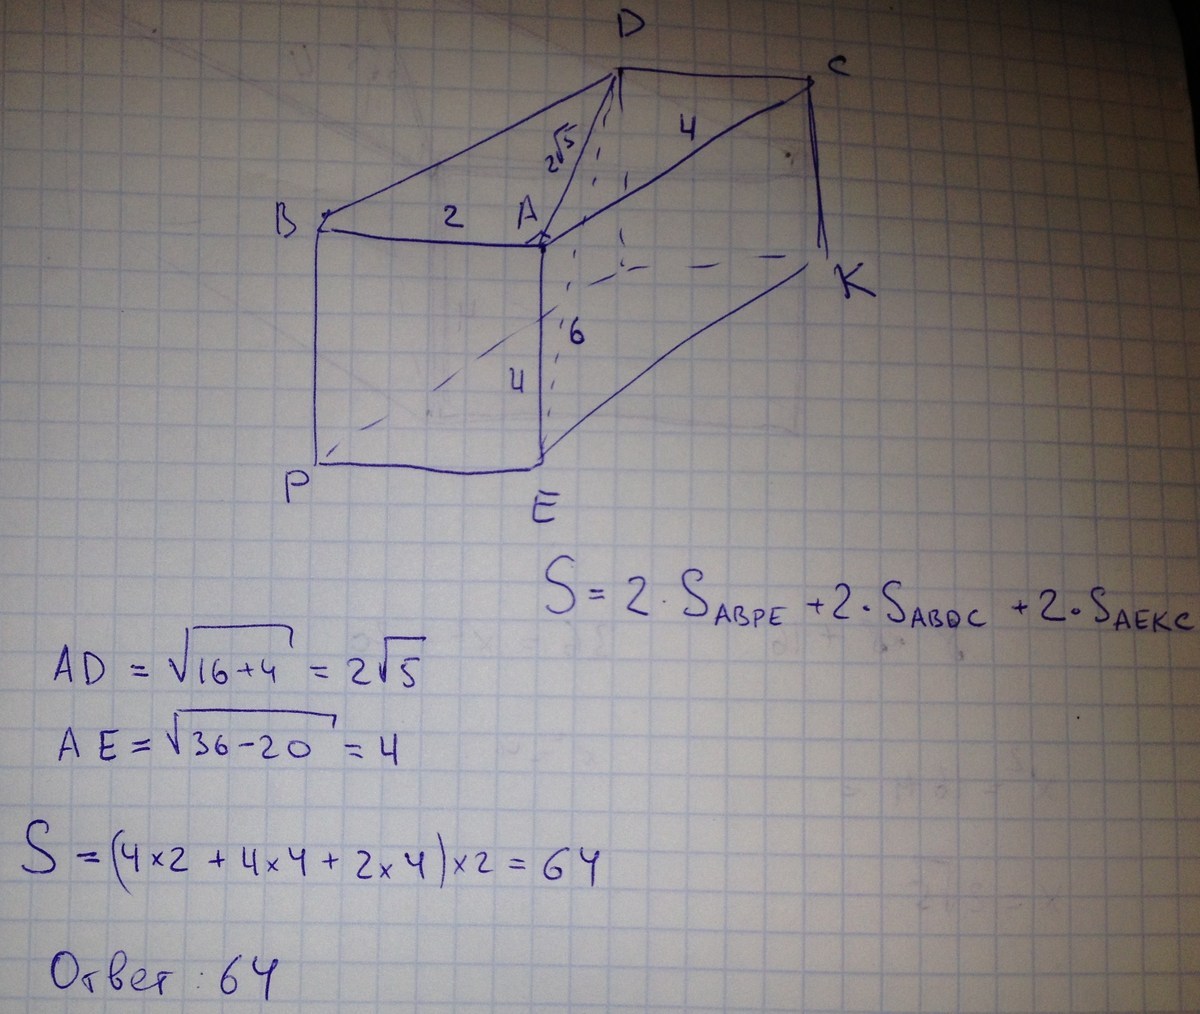 D
C
2√5
4
B
2
A
6
4
K
P
E
S = 2 · S ABPE + 2 · S ABDC + 2 · S AEKC
AD = √16+4 = 2√5
AE = √36-20 = 4
S = (4×2 + 4×4 + 2×4)×2 = 64
Ответ : 64